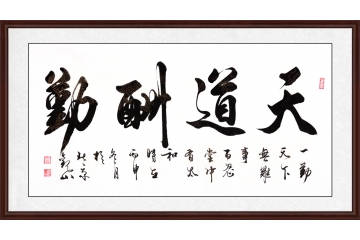 天道酬勤
一勤
天下
無難
事
百忍
堂中
有太
和
時在
丙申
冬月
於
北京